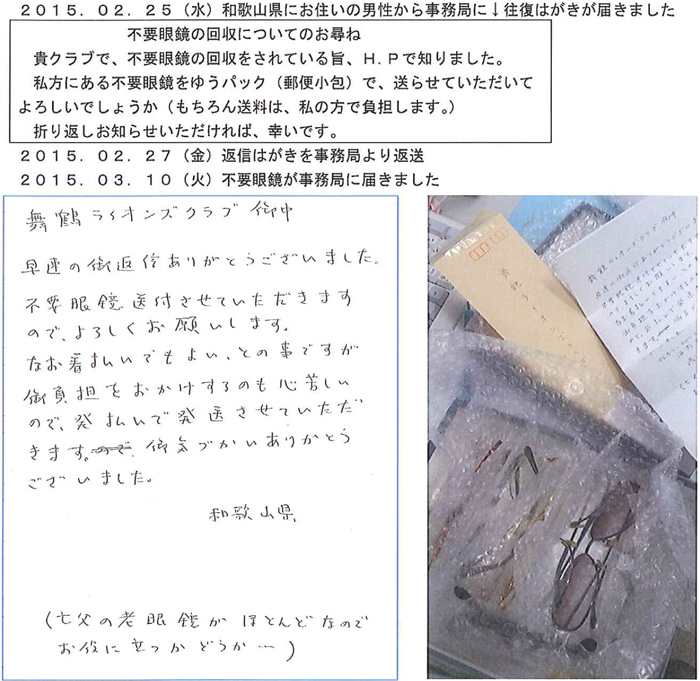 2015．02．25（水）和歌山県にお住いの男性から事務局に↓往復はがきが届きました
不要眼鏡の回収についてのお尋ね
貴クラブで、不要眼鏡の回収をされている旨、H.Pで知りました。
私方にある不要眼鏡をゆうパック（郵便小包）で、送らせていただいて
よろしいでしょうか（もちろん送料は、私の方で負担します。）
折り返しお知らせいただければ、幸いです。
2015．02．27（金）返信はがきを事務局より返送
2015．03．10（火）不要眼鏡が事務局に届きました
舞鶴ライオンズクラブ御中
早速の御返信ありがとうございました。
不要眼鏡送付させていただきます
ので、よろしくお願いします。
なお着払いでもよい、との事ですが
御負担をおかけするのも心苦しい
ので、発払いで発送させていただ
きます。御気づかいありがとう
ございました。
和歌山県
（亡父の老眼鏡がほとんどなので
お役に立つかどうか…）
舞鶴ライオンズクラブ